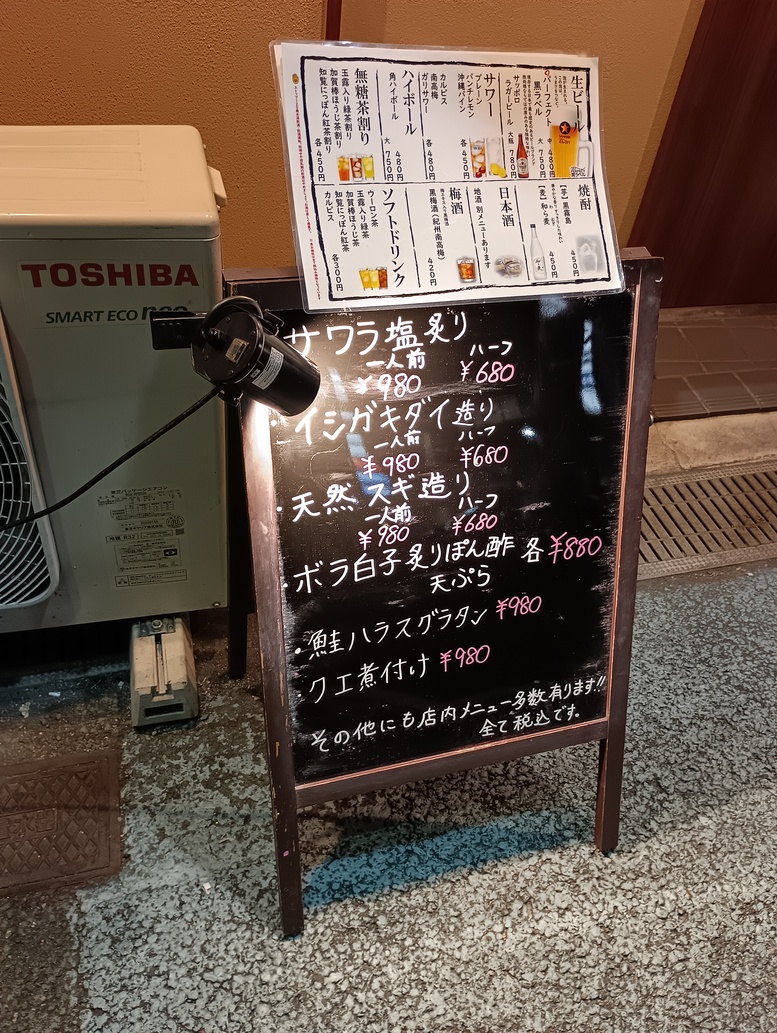 生ビール
パーフェクト
黒ラベル
中 480円
大 750円
サッポロ
ラガービール
大瓶 780円
サワー
プレーン
パンチレモン
沖縄パイン
各 450円
カルピス
南高梅
ガリサワー
各 480円
ハイボール
角ハイボール
480円
大 750円
無糖茶割り
玉露入り緑茶割り
加賀棒ほうじ茶割り
知覧にっぽん紅茶割り
各 450円
焼酎
【芋】黒霧島
450円
【麦】和ら麦
450円
日本酒
地酒 別メニューあります
梅酒
黒梅酒(紀州南高梅)
420円
ソフトドリンク
ウーロン茶
玉露入り緑茶
加賀棒ほうじ茶
知覧にっぽん紅茶
カルピス
各300円
TOSHIBA
SMART ECO neo
サワラ塩炙り
一人前 ハーフ
¥980 ¥680
・イシガキダイ造り
一人前 ハーフ
¥980 ¥680
・天然スギ造り
一人前 ハーフ
¥980 ¥680
・ボラ白子炙りぽん酢 各¥880
天ぷら
・鮭ハラスグラタン ¥980
・クエ煮付け ¥980
その他にも店内メニュー多数有ります!!
全て税込です。